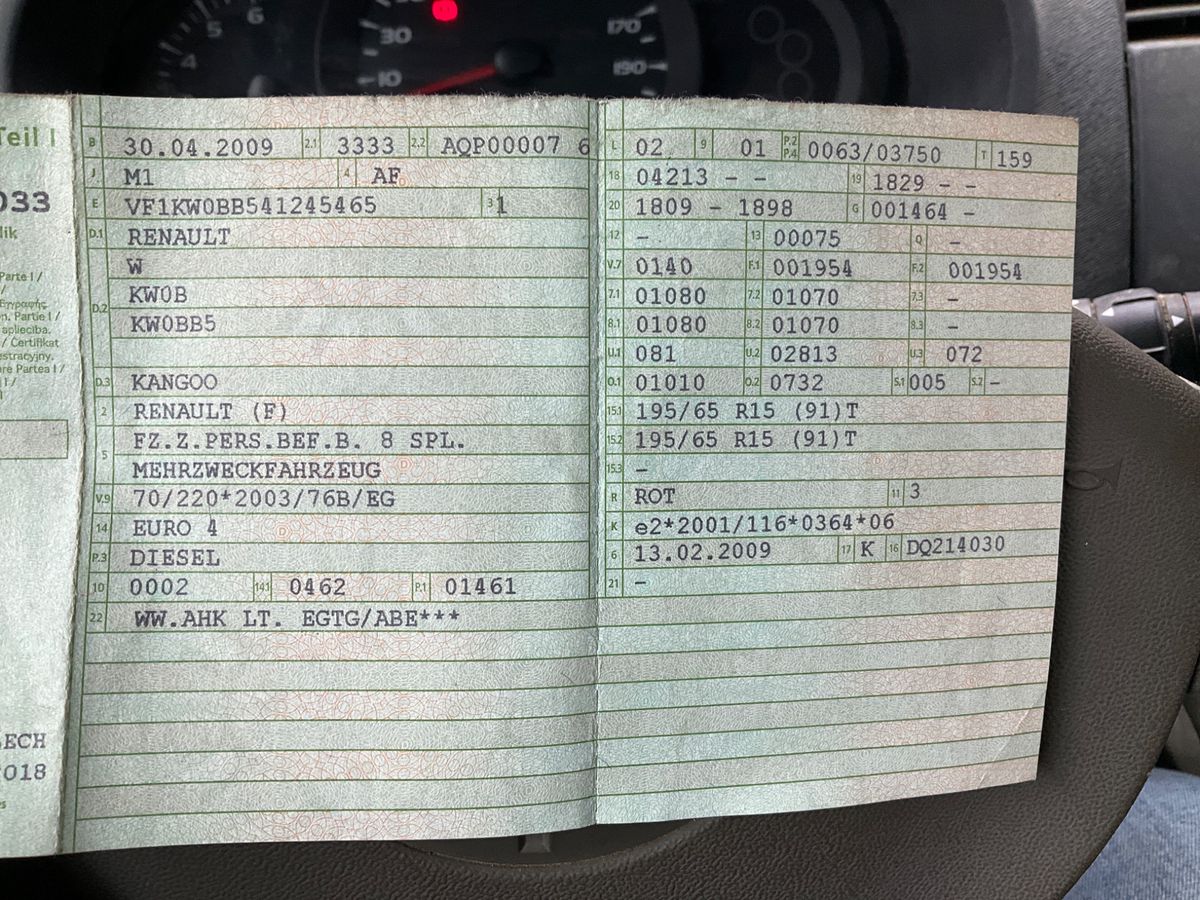 5 6
4 30 170
10 190
Teil I
033
lik
Parte I /
/
Εγγραφής
n. Partie I /
apliecība.
/ Certifikat
estracyjny.
are Partea I /
I /
ECH
018
B 30.04.2009 2.1 3333 2.2 AQP00007 6
J M1 4 AF
E VF1KW0BB541245465 3 1
D.1 RENAULT
D.2 W
KW0B
KW0BB5
D.3 KANGOO
2 RENAULT (F)
5 FZ.Z.PERS.BEF.B. 8 SPL.
MEHRZWECKFAHRZEUG
V.9 70/220*2003/76B/EG
14 EURO 4
P.3 DIESEL
10 0002 14.1 0462 P.1 01461
22 WW.AHK LT. EGTG/ABE***
L 02 9 01 P.2 P.4 0063/03750 T 159
18 04213 - - 19 1829 - -
20 1809 - 1898 G 001464 -
12 - 13 00075 Q -
V.7 0140 F.1 001954 F.2 001954
7.1 01080 7.2 01070 7.3 -
8.1 01080 8.2 01070 8.3 -
U.1 081 U.2 02813 U.3 072
O.1 01010 O.2 0732 S.1 005 S.2 -
15.1 195/65 R15 (91)T
15.2 195/65 R15 (91)T
15.3 -
R ROT 11 3
K e2*2001/116*0364*06
6 13.02.2009 17 K 16 DQ214030
21 -